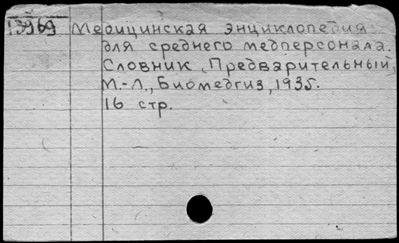 13969 Медицинская энциклопедия
для среднего медперсонала.
Словник. Предварительный,
М.-Л., Биомедгиз, 1935.
16 стр.